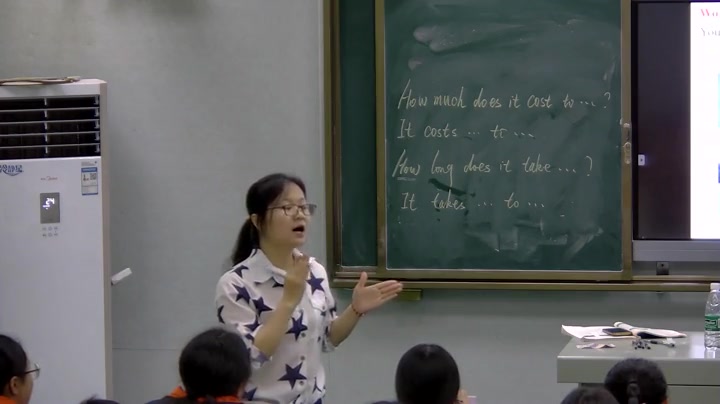 How much does it cost to ... ?
It costs ... to ...
How long does it take ... ?
It takes ... to ...
You
24